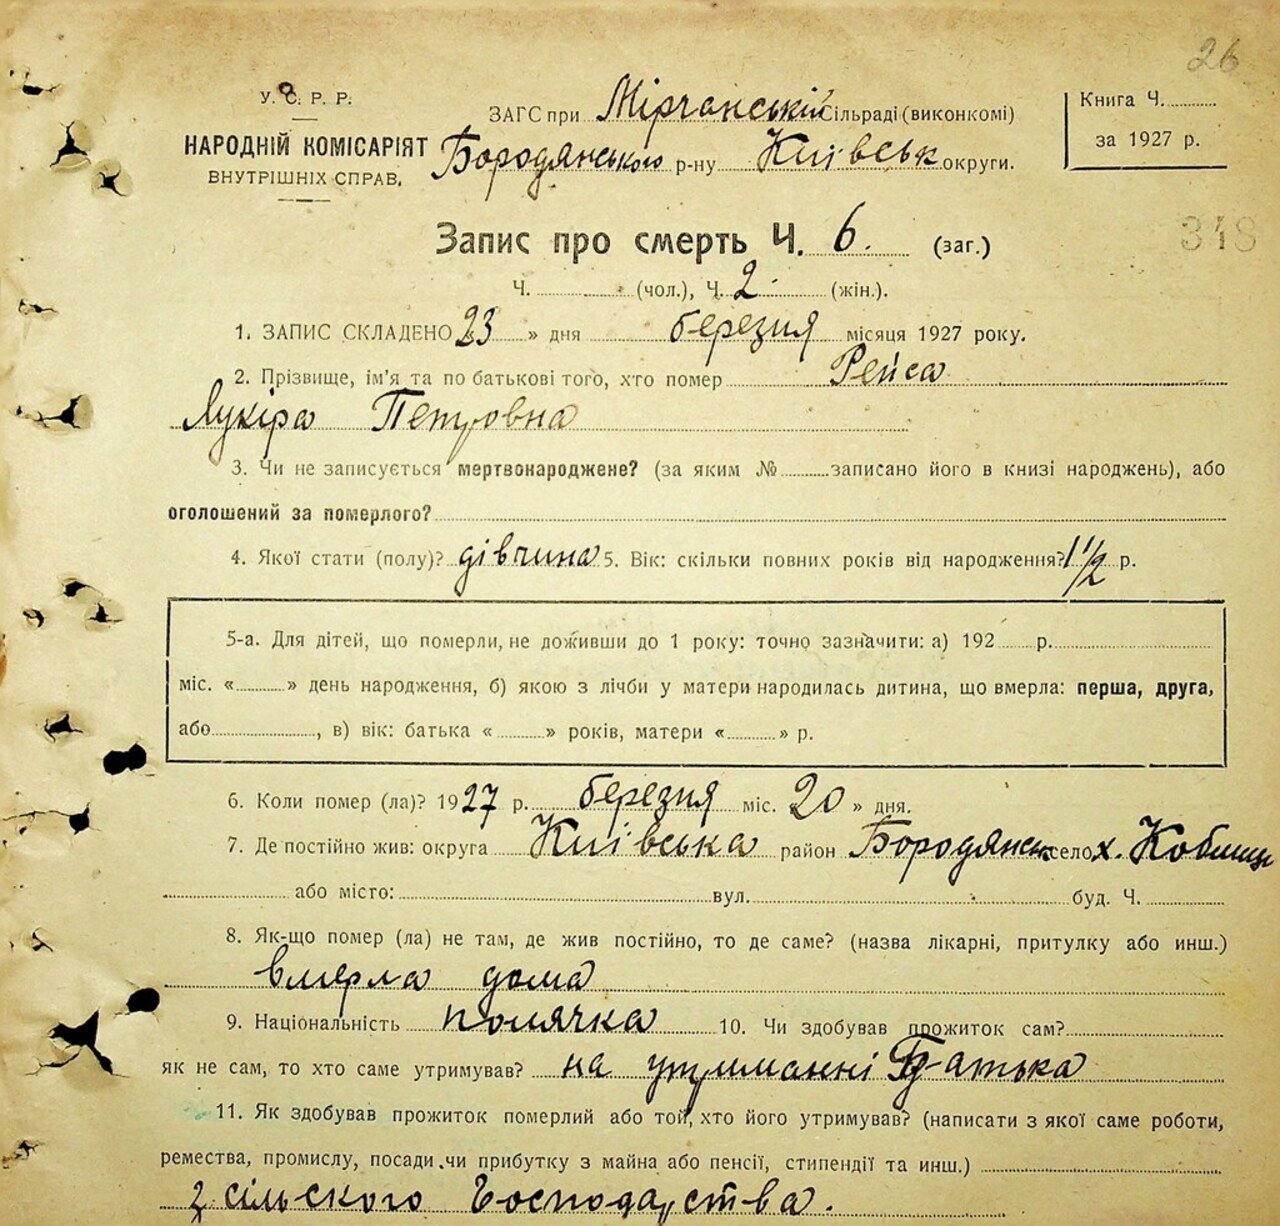 26
У. С. Р. Р.
НАРОДНІЙ КОМІСАРІЯТ
ВНУТРІШНІХ СПРАВ.
ЗАГС при Мірчанській сільраді (виконкомі)
Бородянського р-ну Київськ округи.
Книга Ч.
за 1927 р.
348
Запис про смерть Ч. 6. (заг.)
Ч. (чол.), Ч. 2 (жін.).
1. ЗАПИС СКЛАДЕНО 23 » дня березня місяця 1927 року.
2. Прізвище, ім'я та по батькові того, хто помер Рейса
Лукіра Петровна
3. Чи не записується мертвонароджене? (за яким № записано його в книзі народжень), або
оголошений за померлого?
4. Якої стати (полу)? дівчина 5. Вік: скільки повних років від народження? 1 1/2 р.
5-а. Для дітей, що померли, не доживши до 1 року: точно зазначити: а) 192 р.
міс. « » день народження, б) якою з лічби у матери народилась дитина, що вмерла: перша, друга,
або , в) вік: батька « » років, матери « » р.
6. Коли помер (ла)? 1927 р. березня міс. 20 » дня.
7. Де постійно жив: округа Київська район Бородянськ село х. Коблиця
або місто: вул. буд. Ч.
8. Як-що помер (ла) не там, де жив постійно, то де саме? (назва лікарні, притулку або инш.)
вмерла дома
9. Національність полячка 10. Чи здобував прожиток сам?
як не сам, то хто саме утримував? на утриманні батька
11. Як здобував прожиток померлий або той, хто його утримував? (написати з якої саме роботи,
ремества, промислу, посади чи прибутку з майна або пенсії, стипендії та инш.)
з сільского господарства.